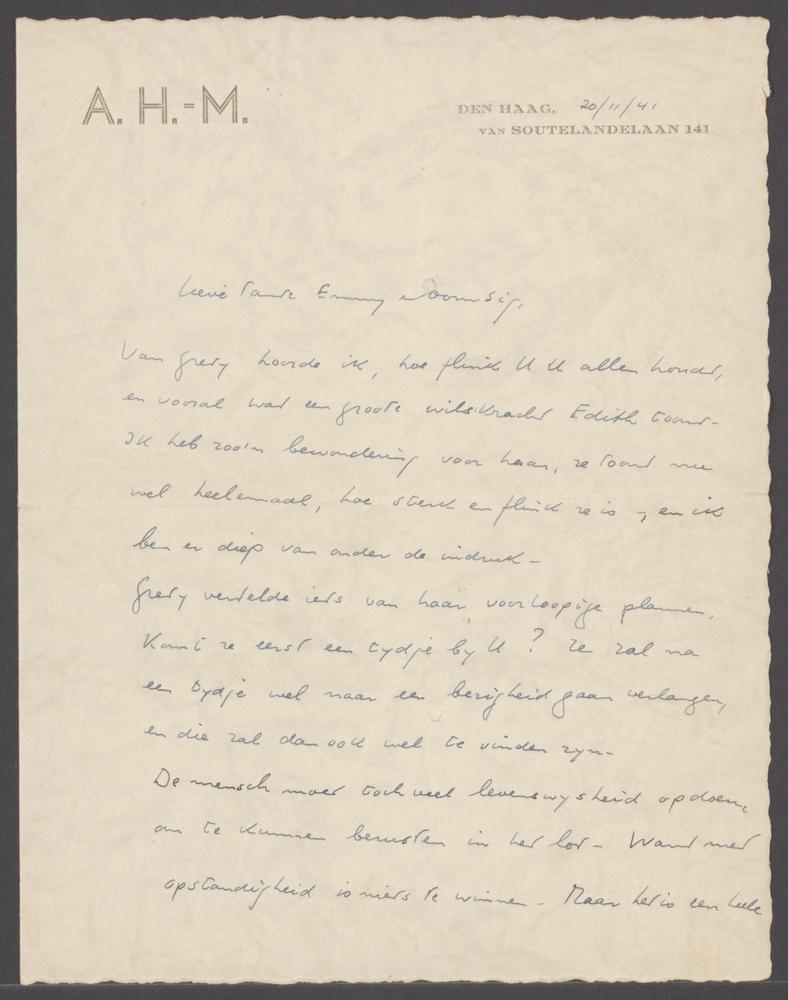 A. H.-M.
DEN HAAG, 20/11/41
VAN SOUTELANDELAAN 141
Lieve Tante Emmy
Van Gredy hoorde ik, hoe flink U U allen houdt,
en vooral wat een groote wilskracht Edith toont-
Ik heb zoo'n bewondering voor haar, ze toont nu
wel heelemaal, hoe sterk en flink ze is -, en ik
ben er diep van onder de indruk -
Gredy vertelde iets van haar voorloopige plannen,
Komt ze eerst een tydje by U? Ze zal na
een tydje wel naar een bezigheid gaan verlangen,
en die zal dan ook wel te vinden zyn-
De mensch moet toch veel levenswysheid opdoen,
om te kunnen berusten in het lot - Want met
opstandigheid is niets te winnen - Maar het is een heele